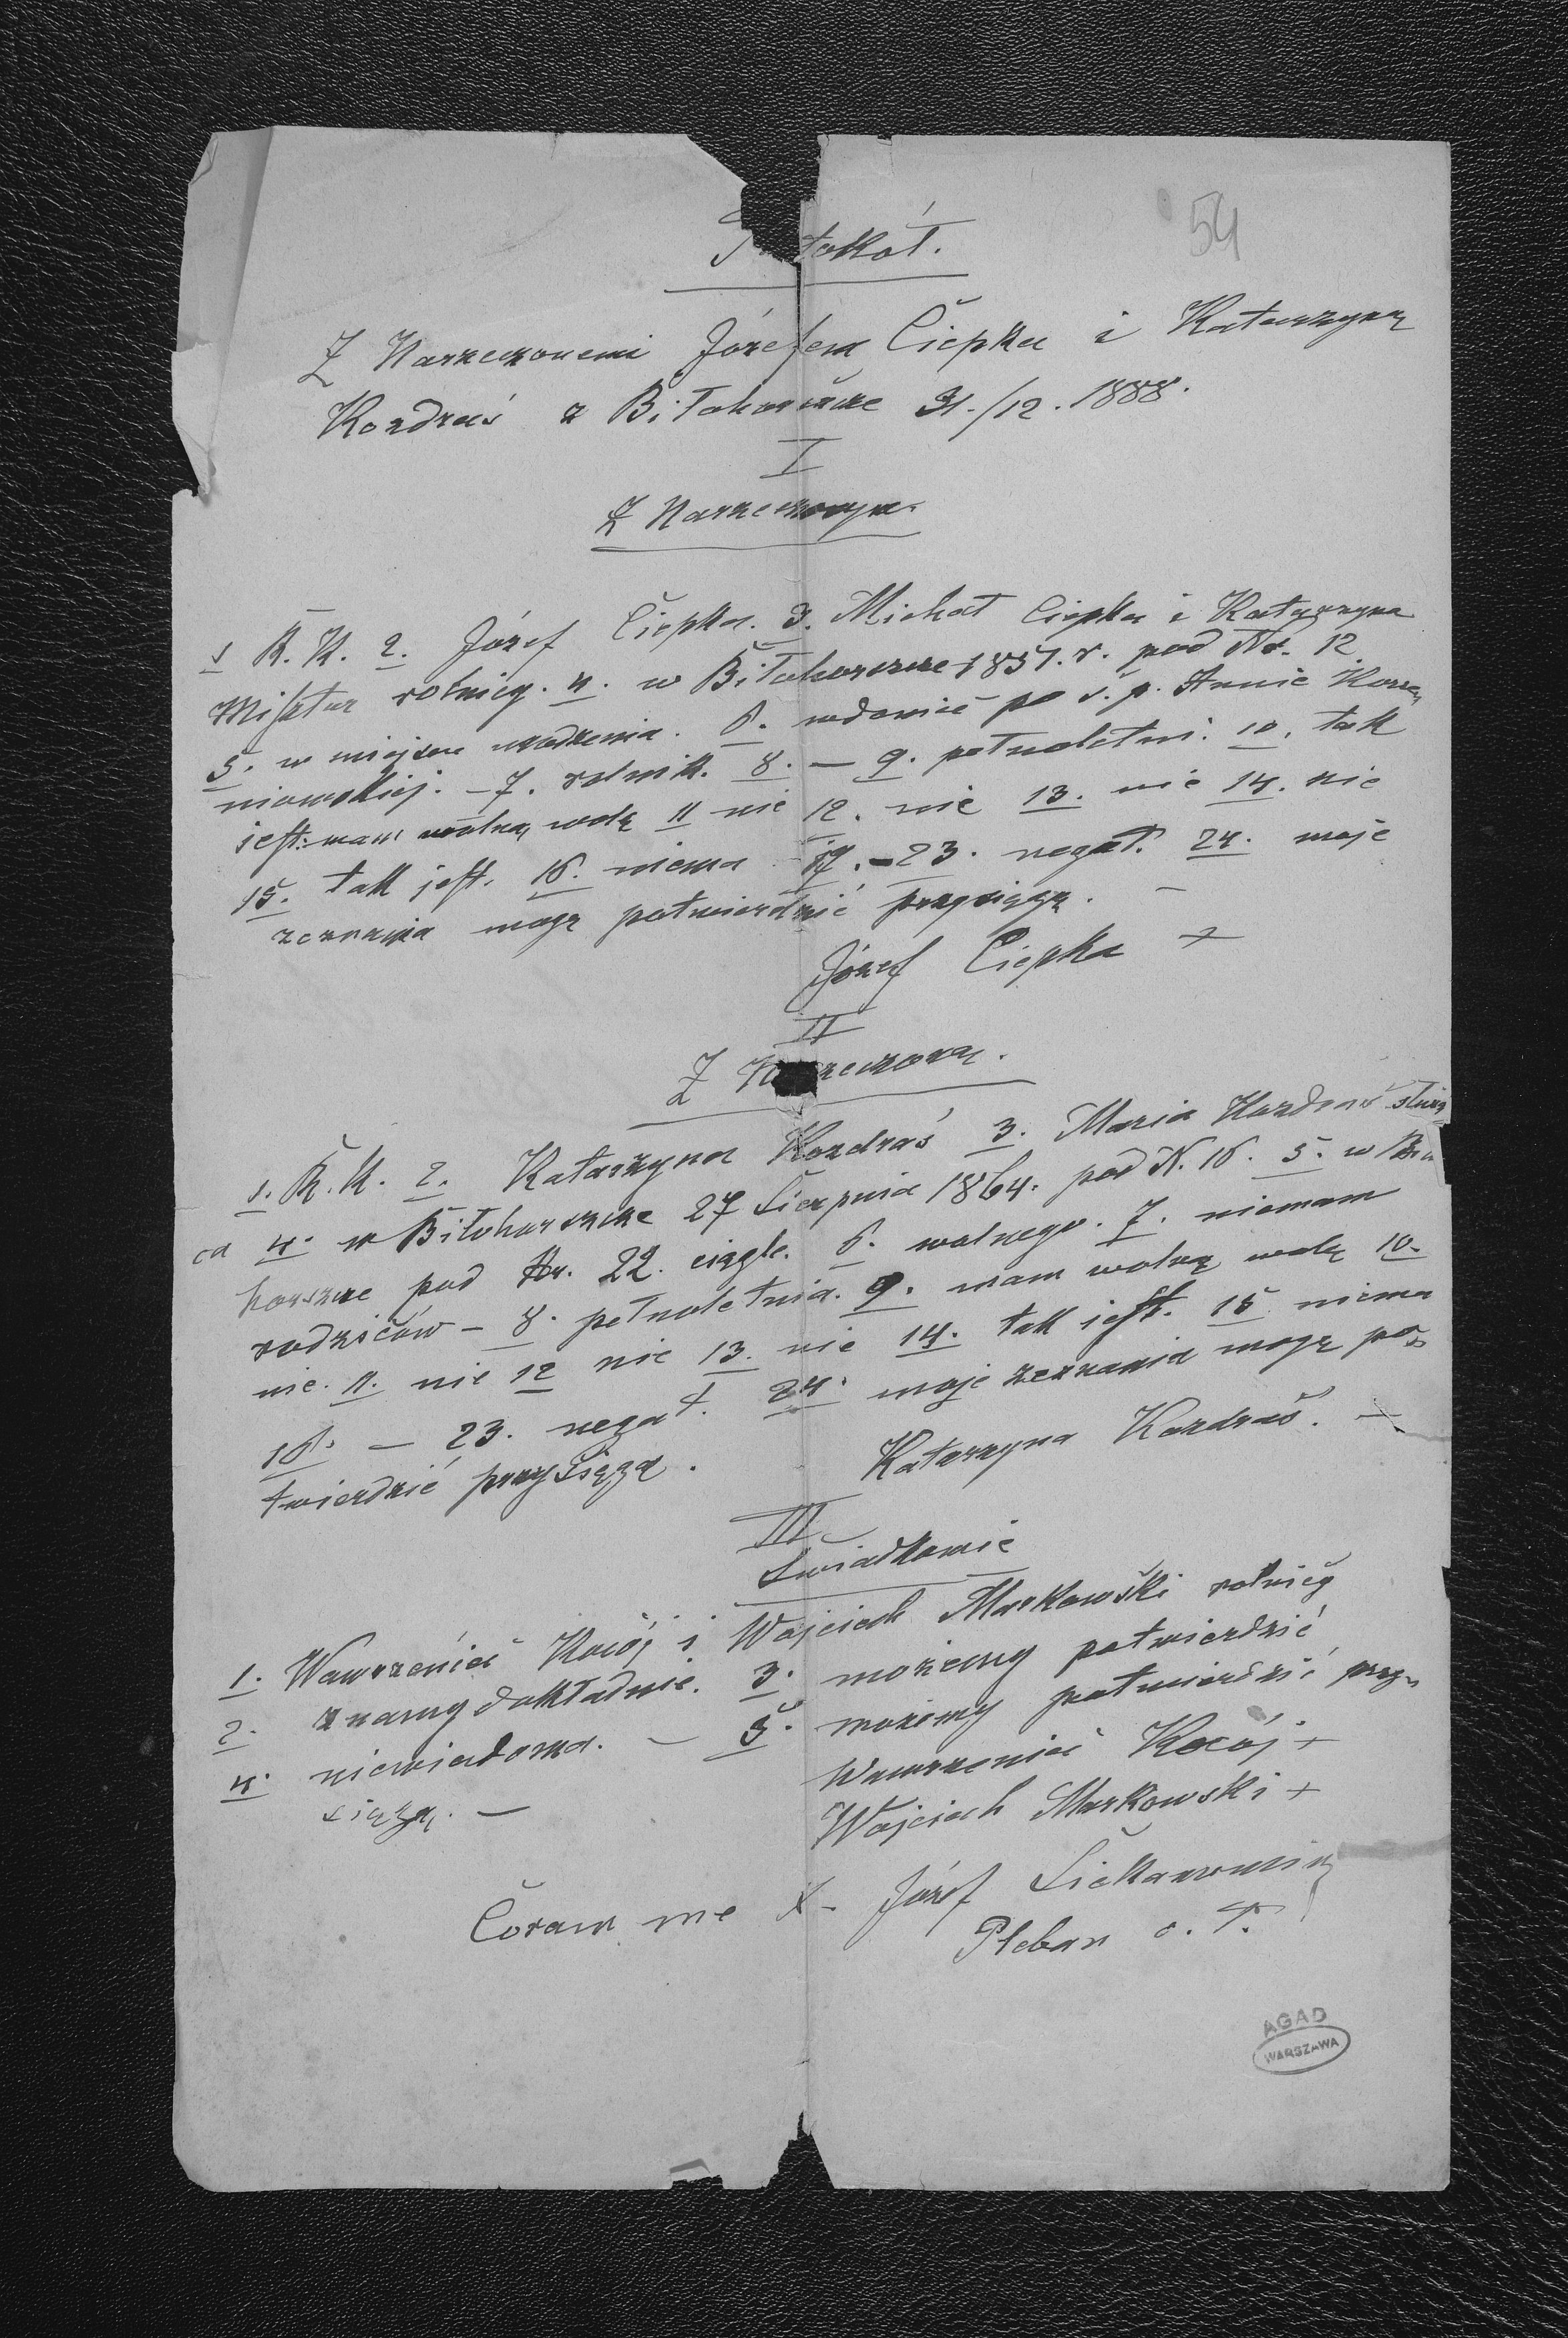 54
tokół.
Z Narzeczonemi Józefem Ciepka i Katarzyną
Kozdraś z Biłohorszcze 31./12. 1888.
I
Z Narzeczonym.
1 R. K. 2. Józef Ciepka. 3. Michał Ciepka i Katarzyna
rolnicy. 4. w Biłohorszcze 1857. r. pod Nr. 12
5. w miejscu urodzenia. 6. wdowiec po ś. p. Annie
niowskiej. – 7. rolnik. 8. – 9. pełnoletni. 10. tak
jest. mam wolną wolę 11 nie 12. nie 13. nie 14. nie
15. tak jest. 16. niema 17. – 23. negat. 24. moje
zeznania mogę potwierdzić przysięgą. –
Józef Ciepka +
II
Z rzeczoną.
1. R. K. 2. Katarzyna Kozdraś 3. Maria Kozdraś służą
ca 4. w Biłohorszcze 27 Sierpnia 1864. pod N. 16. 5. w Biło
horszcze pod Nr. 22. ciągle. 6. wolnego. 7. niemam
rodziców – 8. pełnoletnia. 9. mam wolną wolę 10.
nie. 11. nie 12 nie 13. nie 14. tak jest. 15 niema
16. – 23. negat. 24. moje zeznania mogę po
twierdzić przysięgą.
Katarzyna Kozdraś. +
III
Świadkowie
1. Wawrzeniec Kocój i Wojciech Markowski rolnicy
2. znamy dokładnie. 3. możemy potwierdzić
4. niewiadoma. – 5. możemy potwierdzić przy
sięgą. –
Wawrzeniec Kocój +
Wojciech Markowski +
Coram me X. Józef
Pleban o. ł.
AGAD
WARSZAWA